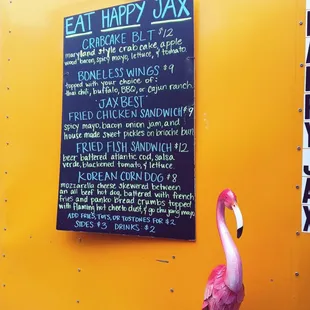 EAT HAPPY JAX
CRABCAKE BLT $12
maryland style crab cake, apple
wood bacon, spicy mayo, lettuce, & tomato.
BONELESS WINGS $9
topped with your choice of:
thai chili, buffalo, BBQ, or cajun ranch.
'JAX BEST'
FRIED CHICKEN SANDWICH $9
spicy mayo, bacon onion jam, and
house made sweet pickles on brioche bun
FRIED FISH SANDWICH $12
beer battered atlantic cod, salsa
verde, blackened tomato, & lettuce.
KOREAN CORN DOG $8
mozzarella cheese skewered between
an all beef hot dog, battered with french
fries and panko bread crumbs topped
with flamin hot cheeto dust, & go chu jang mayo
ADD FRIES, TOTS, OR TOSTONES FOR $2
SIDES: $3 DRINKS: $2